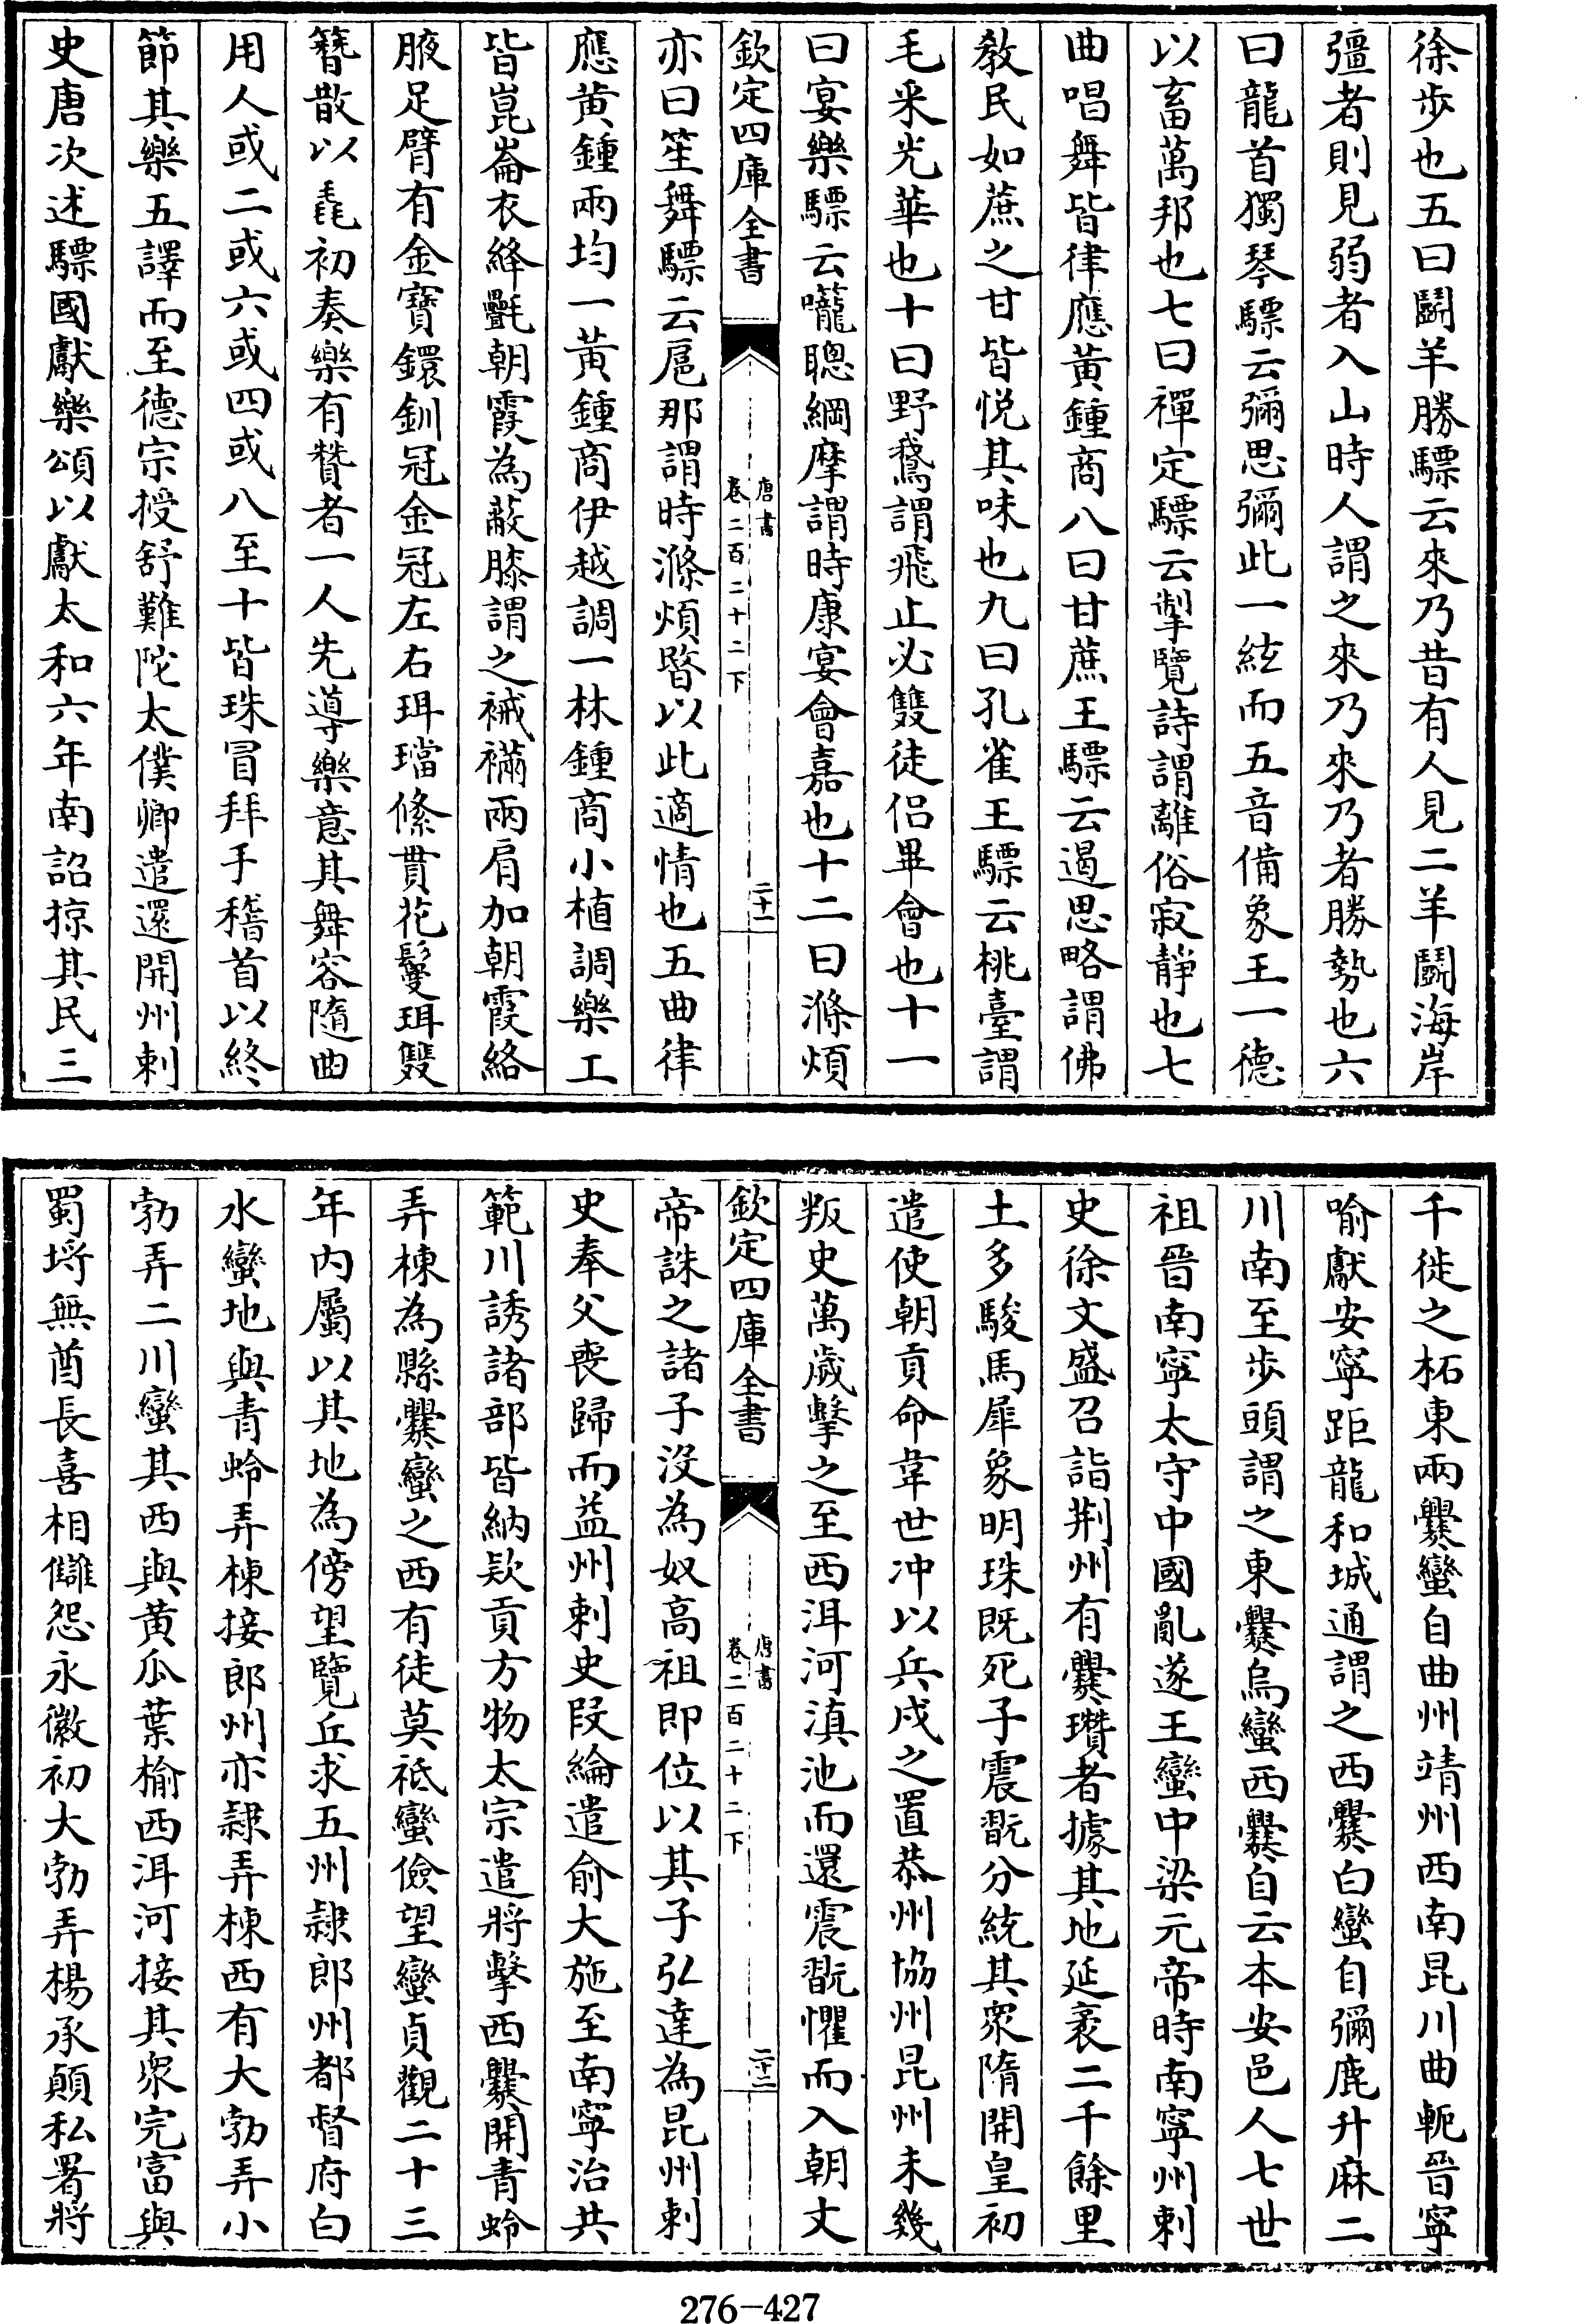 徐歩也五曰鬭羊勝驃云來乃昔有人見二羊鬭海岸
彊者則見弱者入山時人謂之來乃來乃者勝勢也六
曰龍首獨琴驃云彌思彌此一絃而五音備象王一德
以畜萬邦也七曰禪定驃云掣覽詩謂離俗寂靜也七
曲唱舞皆律應黃鍾商八曰甘蔗王驃云遏思略謂佛
教民如蔗之甘皆悦其味也九曰孔雀王驃云桃臺謂
毛采光華也十曰野鵞謂飛止必雙徒侣畢會也十一
曰宴樂驃云嚨聰綱摩謂時康宴會嘉也十二曰滌煩
欽定四庫全書
唐書
卷二百二十二下
二十一
亦曰笙舞驃云扈那謂時滌煩暋以此適情也五曲律
應黄鍾兩均一黄鍾商伊越調一林鍾商小植調樂工
皆崑崙衣絳氎朝霞為蔽膝謂之裓襔兩肩加朝霞絡
腋足臂有金寳鐶釧冠金冠左右珥璫絛貫花鬘珥雙
簪散以毳初奏樂有贊者一人先導樂意其舞容隨曲
用人或二或六或四或八至十皆珠冒拜手稽首以終
節其樂五譯而至德宗授舒難陀太僕卿遣還開州刺
史唐次述驃國獻樂頌以獻太和六年南詔掠其民三
千徙之柘東兩爨蠻自曲州靖州西南昆川曲軛晉寧
喻獻安寧距龍和城通謂之西爨白蠻自彌鹿升麻二
川南至歩頭謂之東爨烏蠻西爨自云本安邑人七世
祖晉南寧太守中國亂遂王蠻中梁元帝時南寧州刺
史徐文盛召詣荆州有爨瓚者據其地延袤二千餘里
土多駿馬犀象明珠既死子震翫分統其衆隋開皇初
遣使朝貢命韋世冲以兵戍之置恭州協州昆州未幾
叛史萬歲擊之至西洱河滇池而還震翫懼而入朝文
欽定四庫全書
唐書
卷二百二十二下
二十二
帝誅之諸子沒為奴高祖即位以其子弘達為昆州刺
史奉父喪歸而益州刺史段綸遣俞大施至南寧治共
範川誘諸部皆納欵貢方物太宗遣將擊西爨開青蛉
弄棟為縣爨蠻之西有徒莫祗蠻儉望蠻貞觀二十三
年内屬以其地為傍望覽丘求五州隷郎州都督府白
水蠻地與青蛉弄棟接郎州亦隷弄棟西有大勃弄小
勃弄二川蠻其西與黄瓜葉榆西洱河接其衆完富與
蜀埒無酋長喜相讎怨永徽初大勃弄楊承顛私署將
276-427